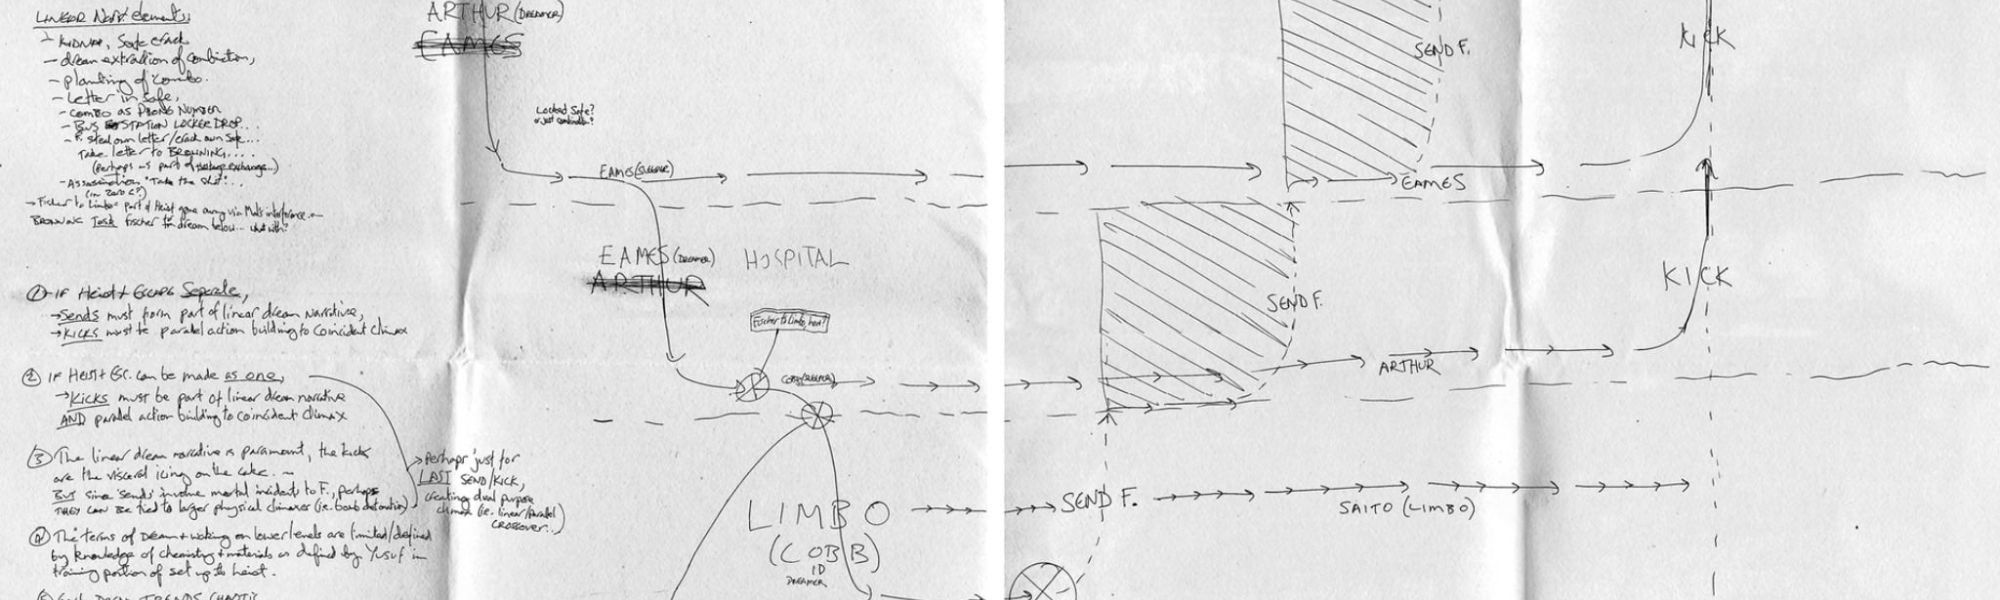 LINEAR Narr. elements:
- KIDNAP, Safe crack
- dream extraction of combination,
- planting of combo.
- Letter in Safe,
- COMBO as PHONE NUMBER
- BUS STATION LOCKER DROP...
- F. steal own letter/crack own Safe...
Take letter to BROWNING....
(perhaps as part of hostage exchange...)
- Assassination "Take the Shot"...
(in Zero G?)
→ Fischer to Limbo part of Heist gone awry via Mal's interference
BROWNING Task Fischer to dream below... what with?
① IF Heist + Escape Separate,
→ Sends must form part of linear dream narrative,
→ KICKS must be parallel action building to Coincident Climax
② IF Heist + Esc. can be made as one,
→ Kicks must be part of linear dream narrative
AND parallel action building to coincident climax
③ The linear dream narrative is paramount, the kicks
are the visceral icing on the cake.
BUT since 'sends' involve mortal incidents to F., perhaps
THEY CAN BE tied to larger physical climaxes (ie. bomb detonation)
→ Perhaps just for
LAST SEND/KICK,
creating dual purpose
climax (ie. linear/parallel
CROSSOVER...)
④ The terms of Dream + waking on lower levels are limited/defined
by knowledge of chemistry + materials as defined by Yusuf in
training portion of set up to heist.
ARTHUR (DREAMER)
EAMES
Locked Safe?
or just combination?
EAMES (SUBSEQ)
EAMES (DREAMER) HOSPITAL
ARTHUR
Fischer to Limbo, here?
COBB
LIMBO
(COBB)
DREAMER
SEND F.
KICK
EAMES
SEND F.
KICK
ARTHUR
SEND F.
SAITO (LIMBO)